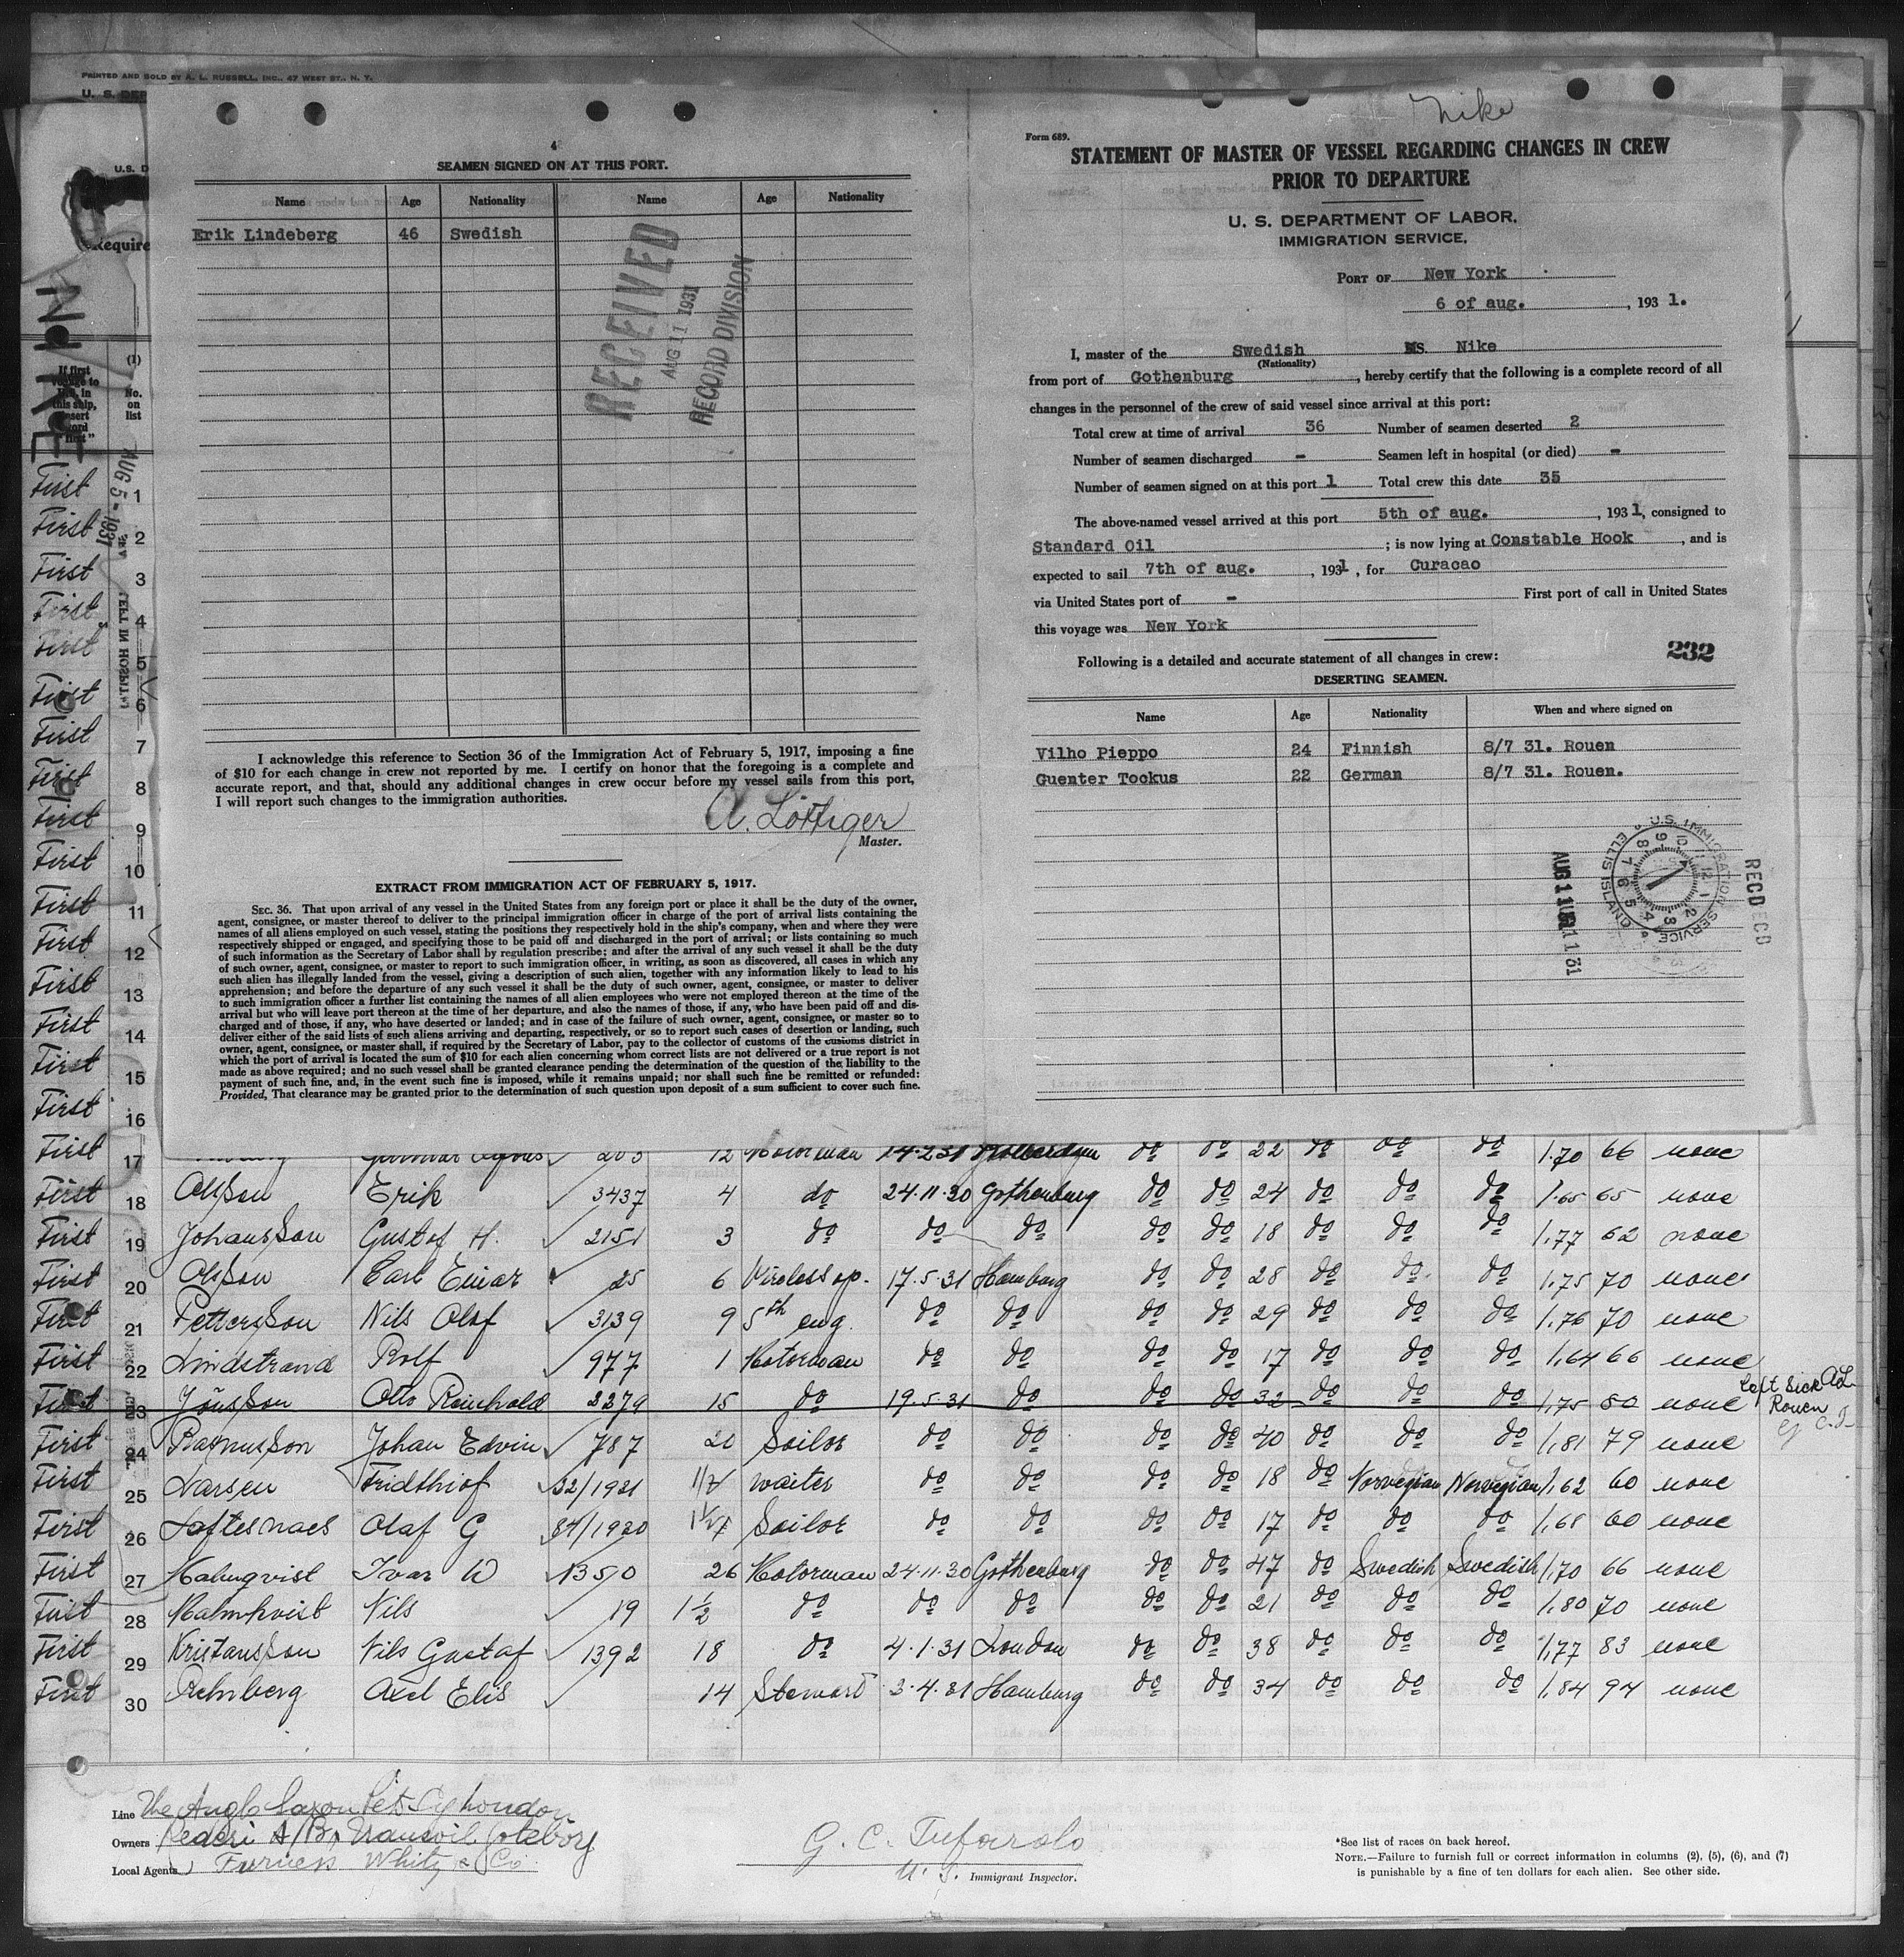 PRINTED AND SOLD BY A. L. RUSSELL, INC., 47 WEST ST., N. Y.
U. S. DEP
U.S. D
Require
NIKE
(1)
No.
on
list
AUG 5 - 1931
4
SEAMEN SIGNED ON AT THIS PORT.
Name Age Nationality Name Age Nationality
Erik Lindeberg 46 Swedish
RECEIVED
AUG 11 1931
RECORD DIVISION
I acknowledge this reference to Section 36 of the Immigration Act of February 5, 1917, imposing a fine
of $10 for each change in crew not reported by me. I certify on honor that the foregoing is a complete and
accurate report, and that, should any additional changes in crew occur before my vessel sails from this port,
I will report such changes to the immigration authorities.
A. Löttiger
Master.
EXTRACT FROM IMMIGRATION ACT OF FEBRUARY 5, 1917.
SEC. 36. That upon arrival of any vessel in the United States from any foreign port or place it shall be the duty of the owner,
agent, consignee, or master thereof to deliver to the principal immigration officer in charge of the port of arrival lists containing the
names of all aliens employed on such vessel, stating the positions they respectively hold in the ship's company, when and where they were
respectively shipped or engaged, and specifying those to be paid off and discharged in the port of arrival; or lists containing so much
of such information as the Secretary of Labor shall by regulation prescribe; and after the arrival of any such vessel it shall be the duty
of such owner, agent, consignee, or master to report to such immigration officer, in writing, as soon as discovered, all cases in which any
such alien has illegally landed from the vessel, giving a description of such alien, together with any information likely to lead to his
apprehension; and before the departure of any such vessel it shall be the duty of such owner, agent, consignee, or master to deliver
to such immigration officer a further list containing the names of all alien employees who were not employed thereon at the time of the
arrival but who will leave port thereon at the time of her departure, and also the names of those, if any, who have been paid off and dis-
charged and of those, if any, who have deserted or landed; and in case of the failure of such owner, agent, consignee, or master so to
deliver either of the said lists of such aliens arriving and departing, respectively, or so to report such cases of desertion or landing, such
owner, agent, consignee, or master shall, if required by the Secretary of Labor, pay to the collector of customs of the customs district in
which the port of arrival is located the sum of $10 for each alien concerning whom correct lists are not delivered or a true report is not
made as above required; and no such vessel shall be granted clearance pending the determination of the question of the liability to the
payment of such fine, and, in the event such fine is imposed, while it remains unpaid; nor shall such fine be remitted or refunded:
Provided, That clearance may be granted prior to the determination of such question upon deposit of a sum sufficient to cover such fine.
Nike
Form 689.
STATEMENT OF MASTER OF VESSEL REGARDING CHANGES IN CREW
PRIOR TO DEPARTURE
U. S. DEPARTMENT OF LABOR,
IMMIGRATION SERVICE.
PORT OF New York
6 of aug., 1931.
I, master of the Swedish MS. Nike
(Nationality)
from port of Gothenburg, hereby certify that the following is a complete record of all
changes in the personnel of the crew of said vessel since arrival at this port:
Total crew at time of arrival 36 Number of seamen deserted 2
Number of seamen discharged - Seamen left in hospital (or died) -
Number of seamen signed on at this port 1 Total crew this date 35
The above-named vessel arrived at this port 5th of aug., 1931, consigned to
Standard Oil; is now lying at Constable Hook, and is
expected to sail 7th of aug., 1931, for Curacao
via United States port of - First port of call in United States
this voyage was New York
232
Following is a detailed and accurate statement of all changes in crew:
DESERTING SEAMEN.
Name Age Nationality When and where signed on
Vilho Pieppo 24 Finnish 8/7 31. Rouen
Guenter Tockus 22 German 8/7 31. Rouen.
U.S. IMMIGRATION SERVICE
ELLIS ISLAND
RECD
First 1
First 2
First 3
First 4
First 5
First 6
First 7
First 8
First 9
First 10
First 11
First 12
First 13
First 14
First 15
First 16
First 17 203 12 Motorman 14.2.31 do do 22 do do do 1.70 66 none
First 18 Olsson Erik 3437 4 do 24.11.30 Gothenburg do do 24 do do do 1.65 65 none
First 19 Johansson Gustof H. 2151 3 do do do do do 18 do do do 1,77 62 none
First 20 Olsson Carl Einar 25 6 Wireless op. 17.5.31 Hamburg do do 28 do do do 1,75 70 none
First 21 Pettersson Nils Olof 3139 9 5th eng. do do do do 29 do do do 1,76 70 none
First 22 Lindstrand Rolf 977 1 Motorman do do do do 17 do do do 1,64 66 none
First 23 Jönsson Otto Reinhold 2279 15 do 19.5.31 do do do 32 do do do 1,75 80 none Left Sick
Rouen
First 24 Rasmusson Johan Edvin 787 20 Sailor do do do do 40 do do do 1,81 79 none
First 25 Larsen Fridthiof 32/1931 waiter do do do do 18 do Norwegian Norwegian 1,62 60 none
First 26 Loftesnaes Olaf G 84/1930 Sailor do do do do 17 do do do 1,68 60 none
First 27 Malmqvist Ivar W 1350 26 Motorman 24.11.30 Gothenburg do do 47 do Swedish Swedish 1,70 66 none
First 28 Malmkvist Nils 19 1 1/2 do do do do do 21 do do do 1,80 70 none
First 29 Kristansson Nils Gustaf 1392 18 do 4.1.31 London do do 38 do do do 1,77 83 none
First 30 Rehnberg Axel Elis 14 Steward 3.4.31 Hamburg do do 34 do do do 1,84 94 none
Line The Anglo Saxon Pet. Cy London
Owners Rederi A/B, Transoil Göteborg
Local Agents Furness Whity & Co.
G. C. Tufarolo
U. S. Immigrant Inspector.
*See list of races on back hereof.
NOTE.—Failure to furnish full or correct information in columns (2), (5), (6), and (7)
is punishable by a fine of ten dollars for each alien. See other side.